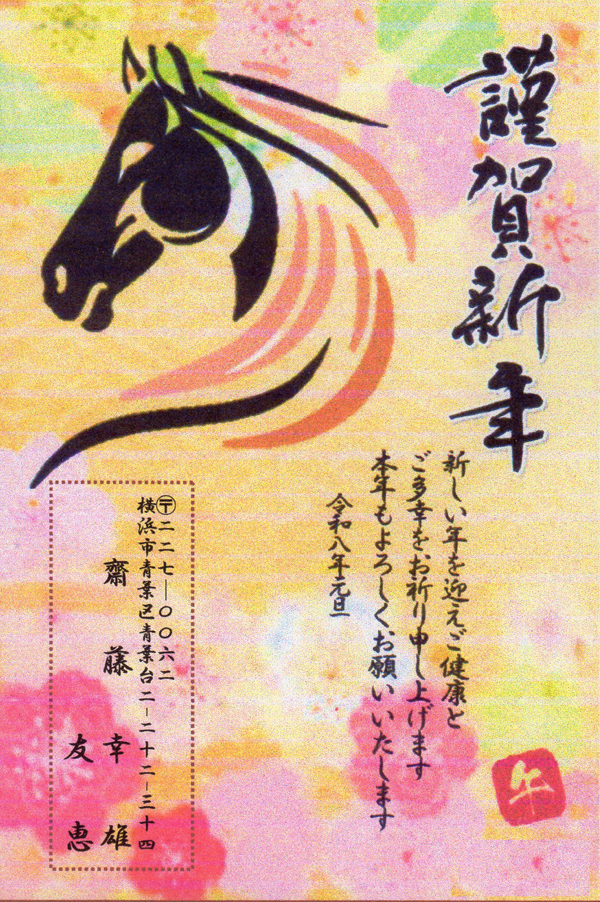 謹賀新年
新しい年を迎えご健康と
ご多幸をお祈り申し上げます
本年もよろしくお願いいたします
令和八年元旦
〒二二七―〇〇六二
横浜市青葉区青葉台二―二十二―三十四
齋藤幸雄
友恵
午